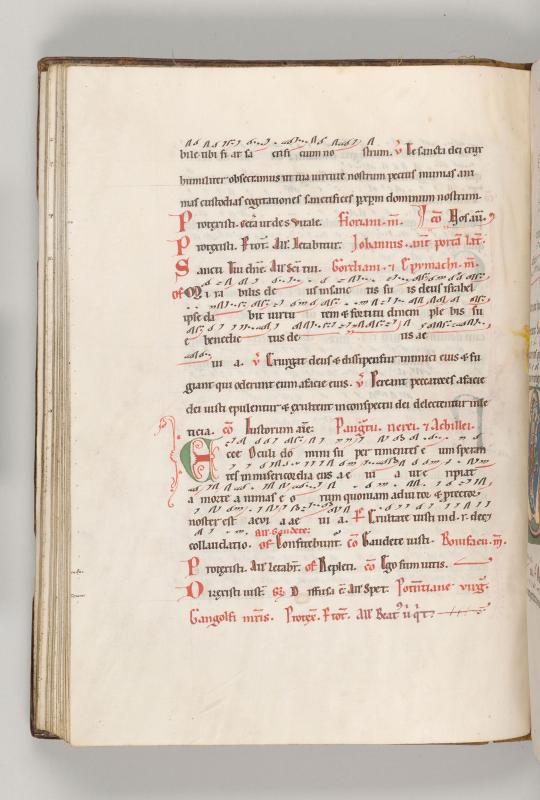 bile tibi fi at sa crifi cium no strum. v Te sancta dei crux
humiliter obsecramus ut tua virtute nostrum pectus munias ani
mas custodias cogitationes sanctifices p xpm dominum nostrum.
Protexisti. vitale. Floriani. m. co
Protexisti. All Letabitur. Johannis. ant portā lat.
Sancti tui dne. All Scti tui. Gordiani. 7 Epymachi. m.
of Mira bilis de us in sanc tis su is deus israhel
ipse da bit virtu tem & fortitu dinem ple bis su
e benedic tus de us ae
uia. v Exurgat deus & dissipentur inimici eius & fu
giant qui oderunt eum a facie eius. v Pereant peccatores a facie
dei iusti epulentur & exultent in conspectu dei delectentur in le
ticia. co Iustorum aie. nerei. 7 Achillei.
Ecce Oculi do mini su per timentes e um speran
tes in misericordia eius ae uia ut e ripiat
a morte a nimas e o rum quoniam adiutor & protector
noster est aeuia ae uia. Ps Exultate iusti
collaudatio. of Confitebunt. co Gaudete iusti. Bonifacii. m.
All Gaudete:
Protexisti. All Letabit. of Repleti. co Ego sum vitis.
Os iusti D iffusa ē. All Spet. Potentiane virg.
Gangolfi mris. Protex. All Beat